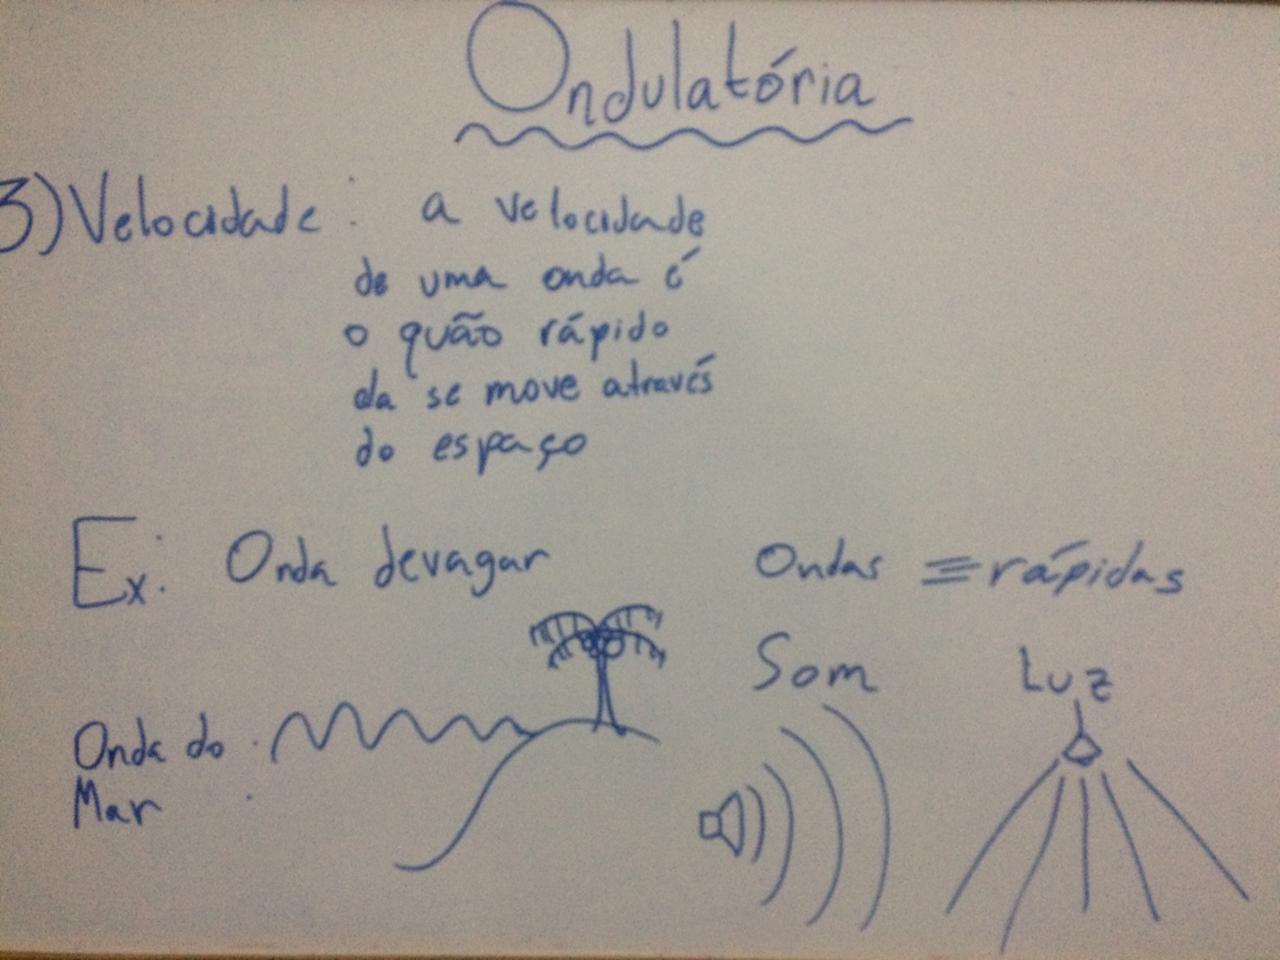 Ondulatória
3) Velocidade: a velocidade
de uma onda é
o quão rápido
ela se move através
do espaço
Ex: Onda devagar
Ondas rápidas
Som
Luz
Onda do
Mar